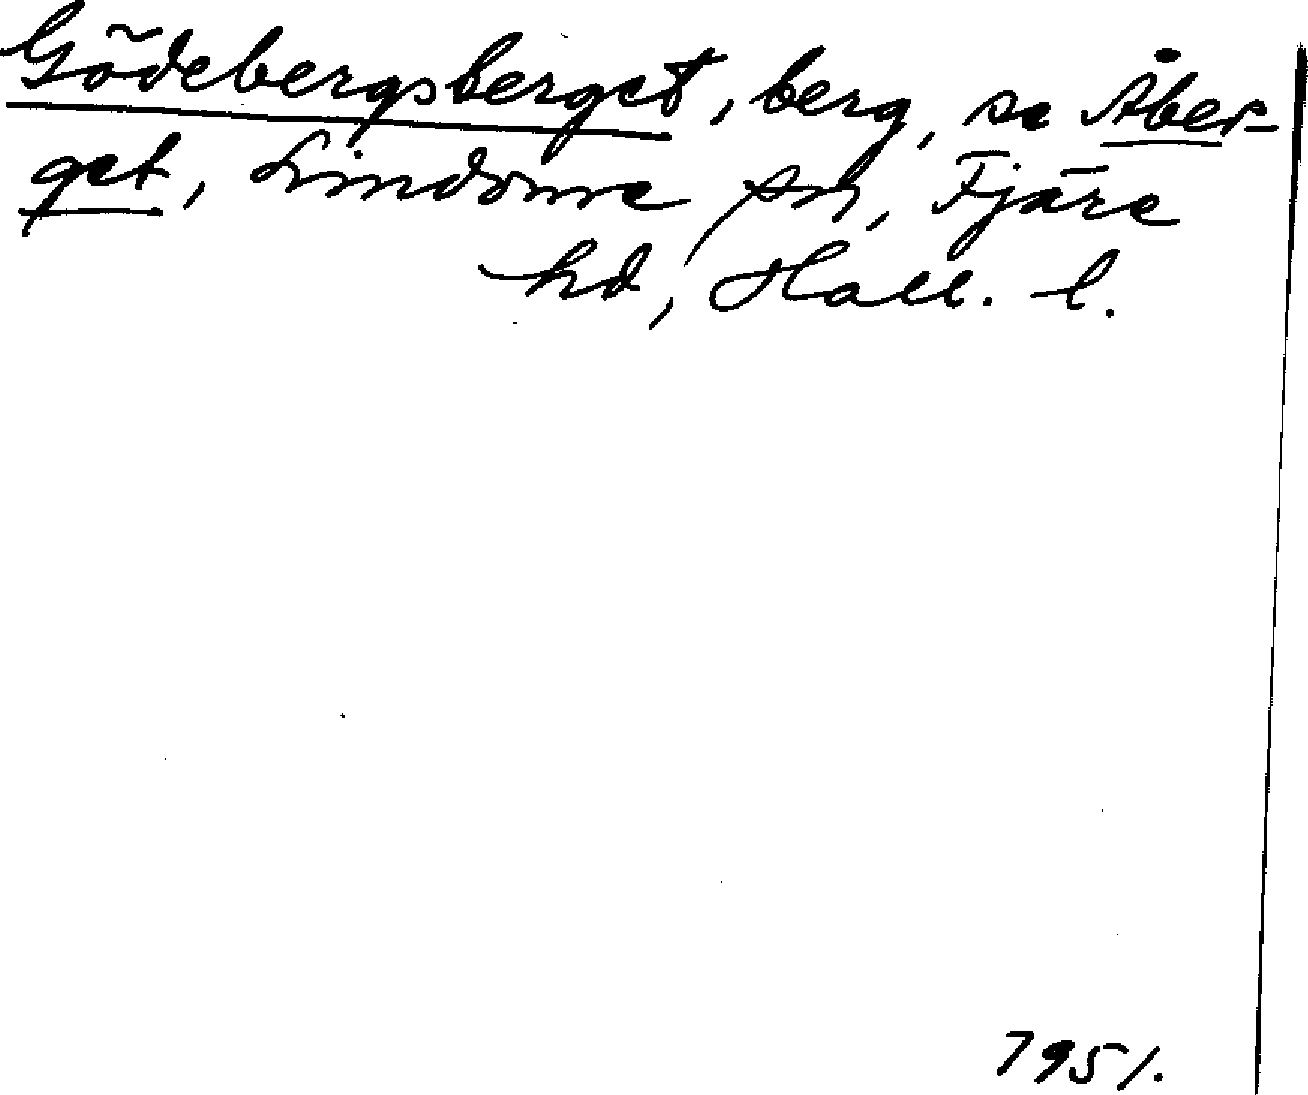 Gödebergsberget, berg, se Åber-
get, Lindome sn, Fjäre
hd, Hall. l.
795/.